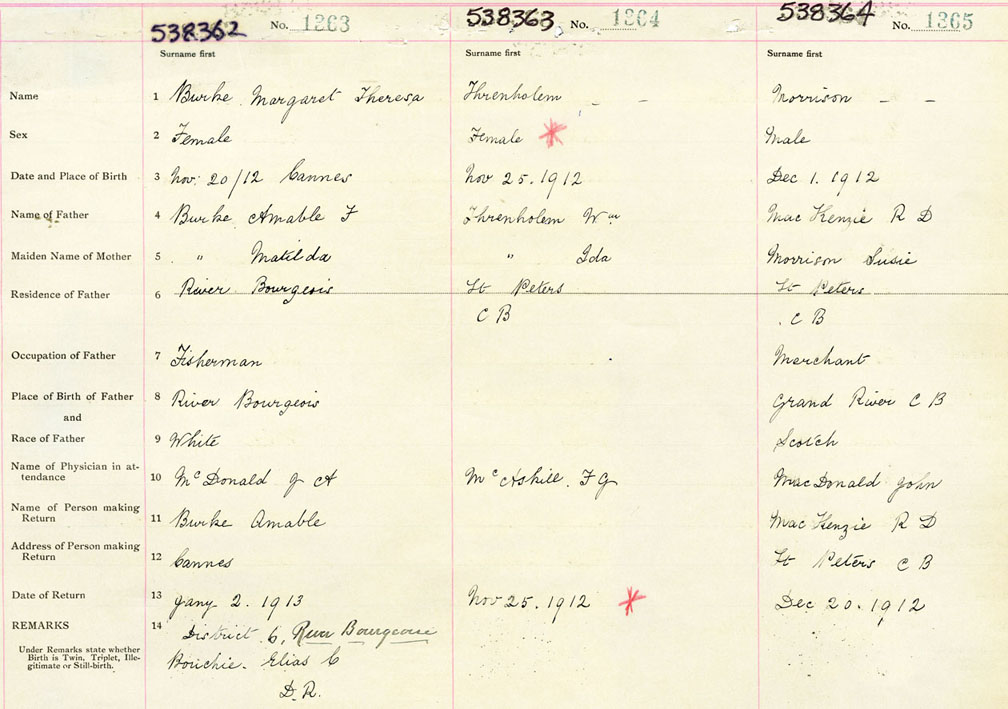 538362 No. 1363 538363 No. 1364 538364 No. 1365
Surname first Surname first Surname first
Name 1 Burke Margaret Theresa Threnholem _ - Morrison - -
Sex 2 Female Female * Male
Date and Place of Birth 3 Nov: 20/12 Cannes Nov 25.1912 Dec 1. 1912
Name of Father 4 Burke Amable F Threnholem Wm Mac Kenzie R D
Maiden Name of Mother 5 . " Matilda " Ida Morrison Susie
Residence of Father 6 River Bourgeois St Peters St Peters
C B . C B
Occupation of Father 7 Fisherman Merchant
Place of Birth of Father 8 River Bourgeois Grand River C B
and
Race of Father 9 White Scotch
Name of Physician in at-
tendance 10 Mc Donald J A Mc Askill. F G MacDonald John
Name of Person making
Return 11 Burke Amable Mac Kenzie R D
Address of Person making
Return 12 Cannes St Peters C B
Date of Return 13 Jany 2. 1913 Nov 25. 1912 * Dec 20. 1912
REMARKS 14 District 6, River Bourgeoise
Under Remarks state whether
Birth is Twin, Triplet, Ille-
gitimate or Still-birth.
Bouchie. Elias C
D.R.